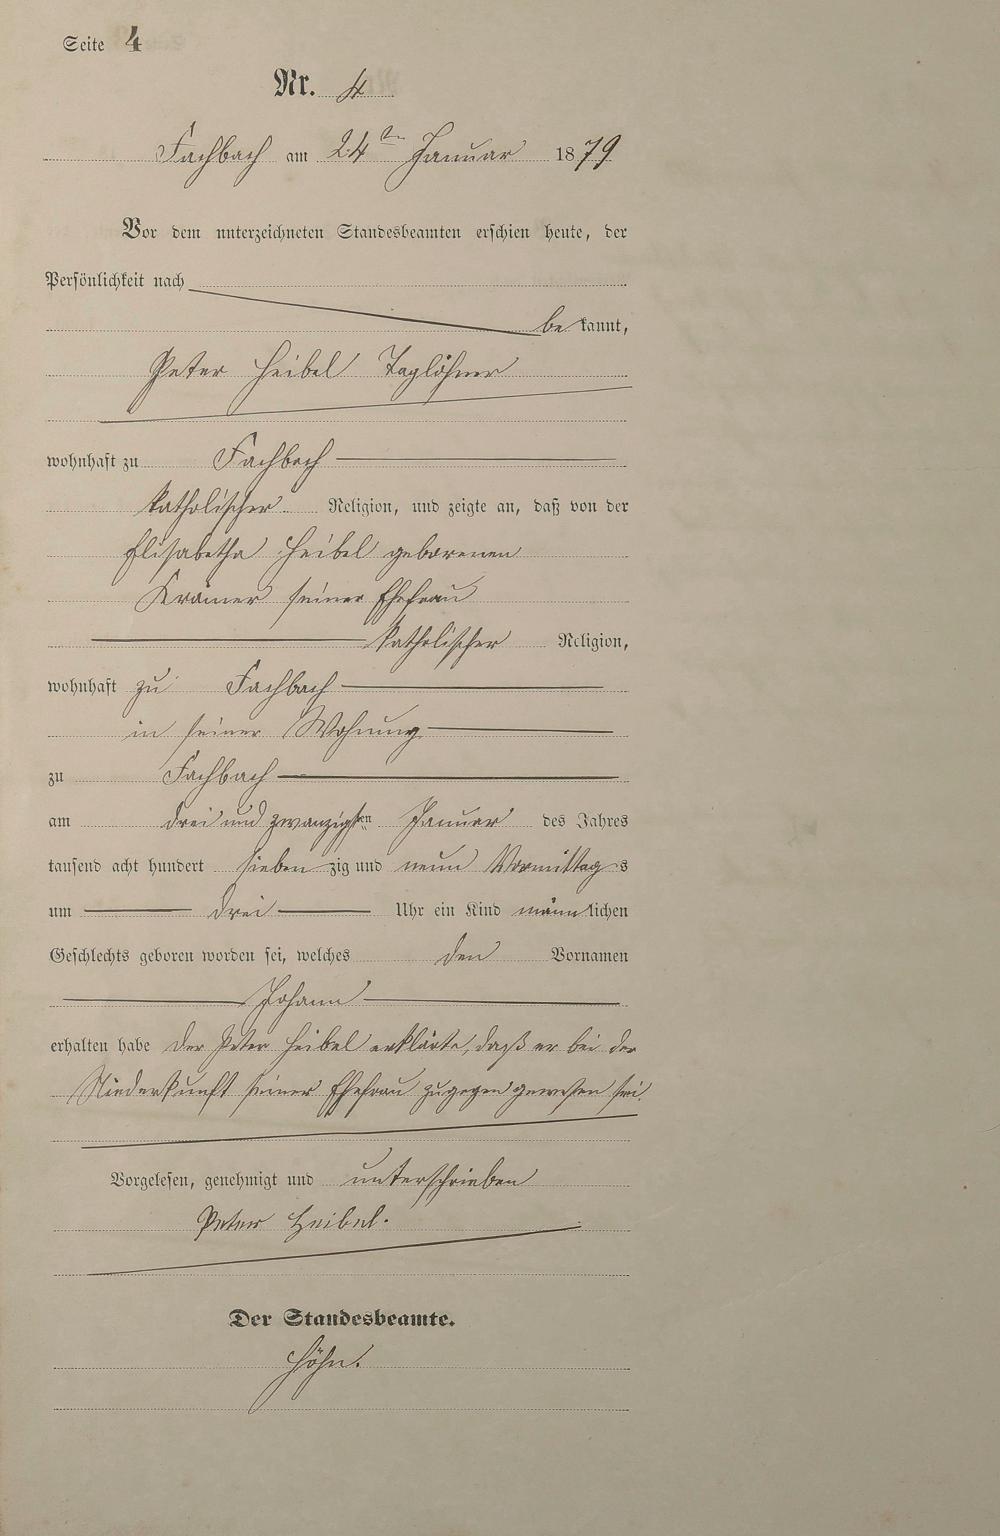 Seite 4
Nr. 4
Fachbach am 24ten Januar 1879
Vor dem unterzeichneten Standesbeamten erschien heute, der
Persönlichkeit nach
bekannt,
Peter Heibel Taglöhner
wohnhaft zu Fachbach
katholischer Religion, und zeigte an, daß von der
Elisabetha Heibel geborenen
Krämer seiner Ehefrau
katholischer Religion,
wohnhaft zu Fachbach
in seiner Wohnung
zu Fachbach
am drei und zwanzigsten Januar des Jahres
tausend acht hundert siebenzig und neun Vormittags
um drei Uhr ein Kind männlichen
Geschlechts geboren worden sei, welches den Vornamen
Johann
erhalten habe der Peter Heibel erklärte, daß er bei der
Niederkunft seiner Ehefrau zugegen gewesen sei.
Vorgelesen, genehmigt und unterschrieben
Peter Heibel.
Der Standesbeamte.
Höhn.